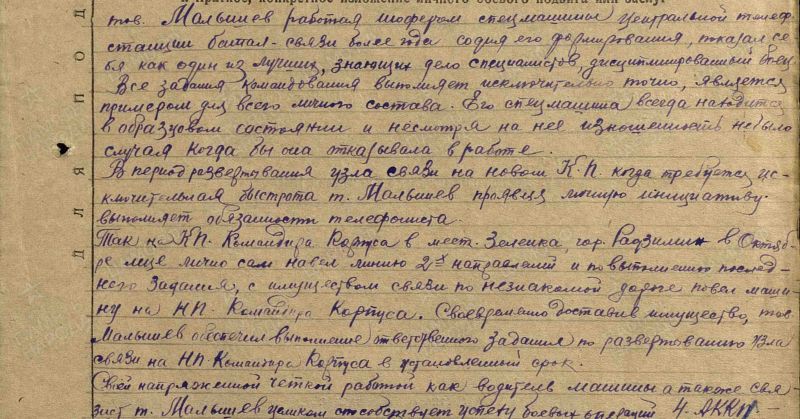 I. Краткое, конкретное изложение личного боевого подвига или заслуг
тов. Малышев работая шофером спецмашины Центральной телеф-
станции батал-связи более года со дня его формирования, показал се-
бя как один из лучших, знающих дело специалистов, дисциплинированный боец
Все задания командования выполняет исключительно точно, является
примером для всего личного состава. Его спецмашина всегда находится
в образцовом состоянии и несмотря на нее изношенность не было
случая когда бы она отказывала в работе.
В период развертывания узла связи на новом К.П. когда требуется ис-
ключительная быстрота т. Малышев проявляя личную инициативу
выполняет обязанности телефониста.
Так на КП. Командира Корпуса в мест. Зеленка, гор. Радзимин в Октяб-
ре м-це лично сам навел линию 2х направлений и по выполнению послед-
него задания, с имуществом связи по незнакомой дороге повел маши-
ну на НП. Командира Корпуса. Своевременно доставив имущество, тов.
Малышев обеспечил выполнение ответственного задания по развертыванию узла
связи на НП Командира Корпуса в установленный срок.
Своей напряженной четкой работой как водитель машины а также свя-
зист т. Малышев целиком способствует успеху боевых операций 4. АККП-
ДЛЯ ПОД